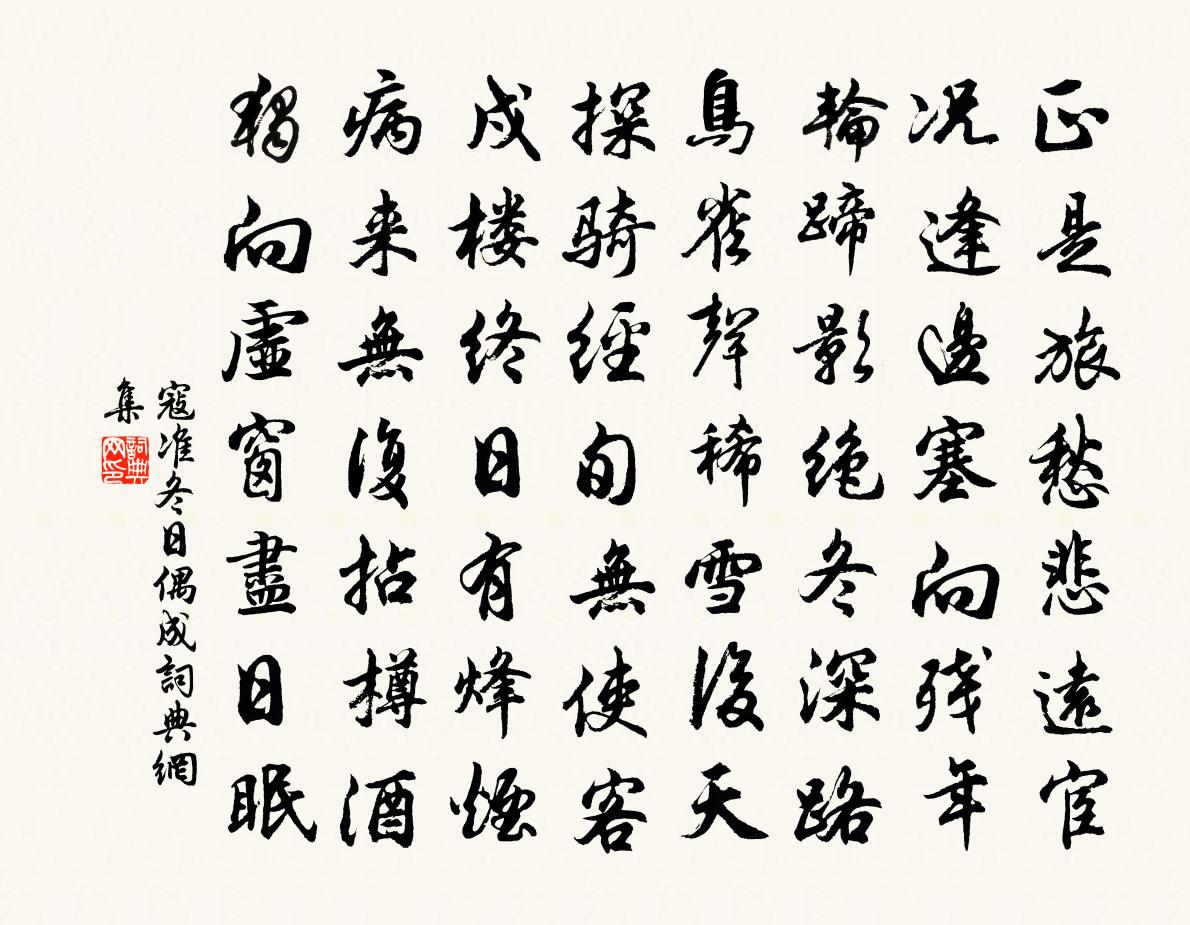 正是旅愁悲遠宦
况逢邊塞向残年
輪蹄影绝冬深路
鳥雀聲稀雪後天
探骑經旬無使客
戍楼终日有烽煙
病来無復拈樽酒
獨向虛窗盡日眠
寇准冬日偶成詞典網
集
詞典
网印